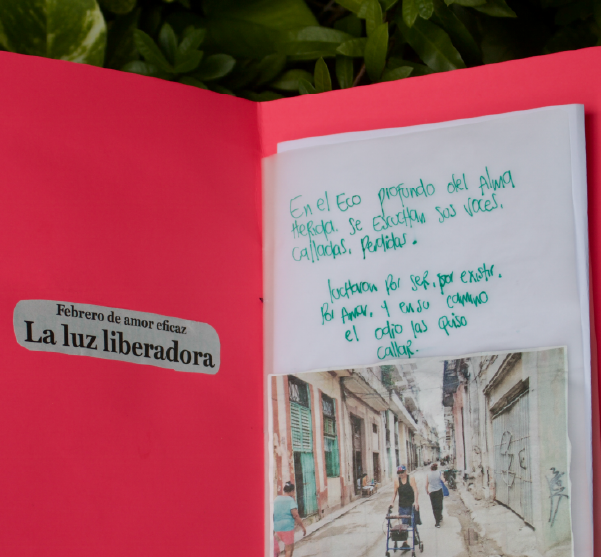 Febrero de amor eficaz
La luz liberadora
En el Eco profundo del Alma
Herida. se Escuchan sus voces.
calladas, perdidas.
lucharon por ser, por existir.
Por Amar, y en su camino
el odio las quiso
callar.